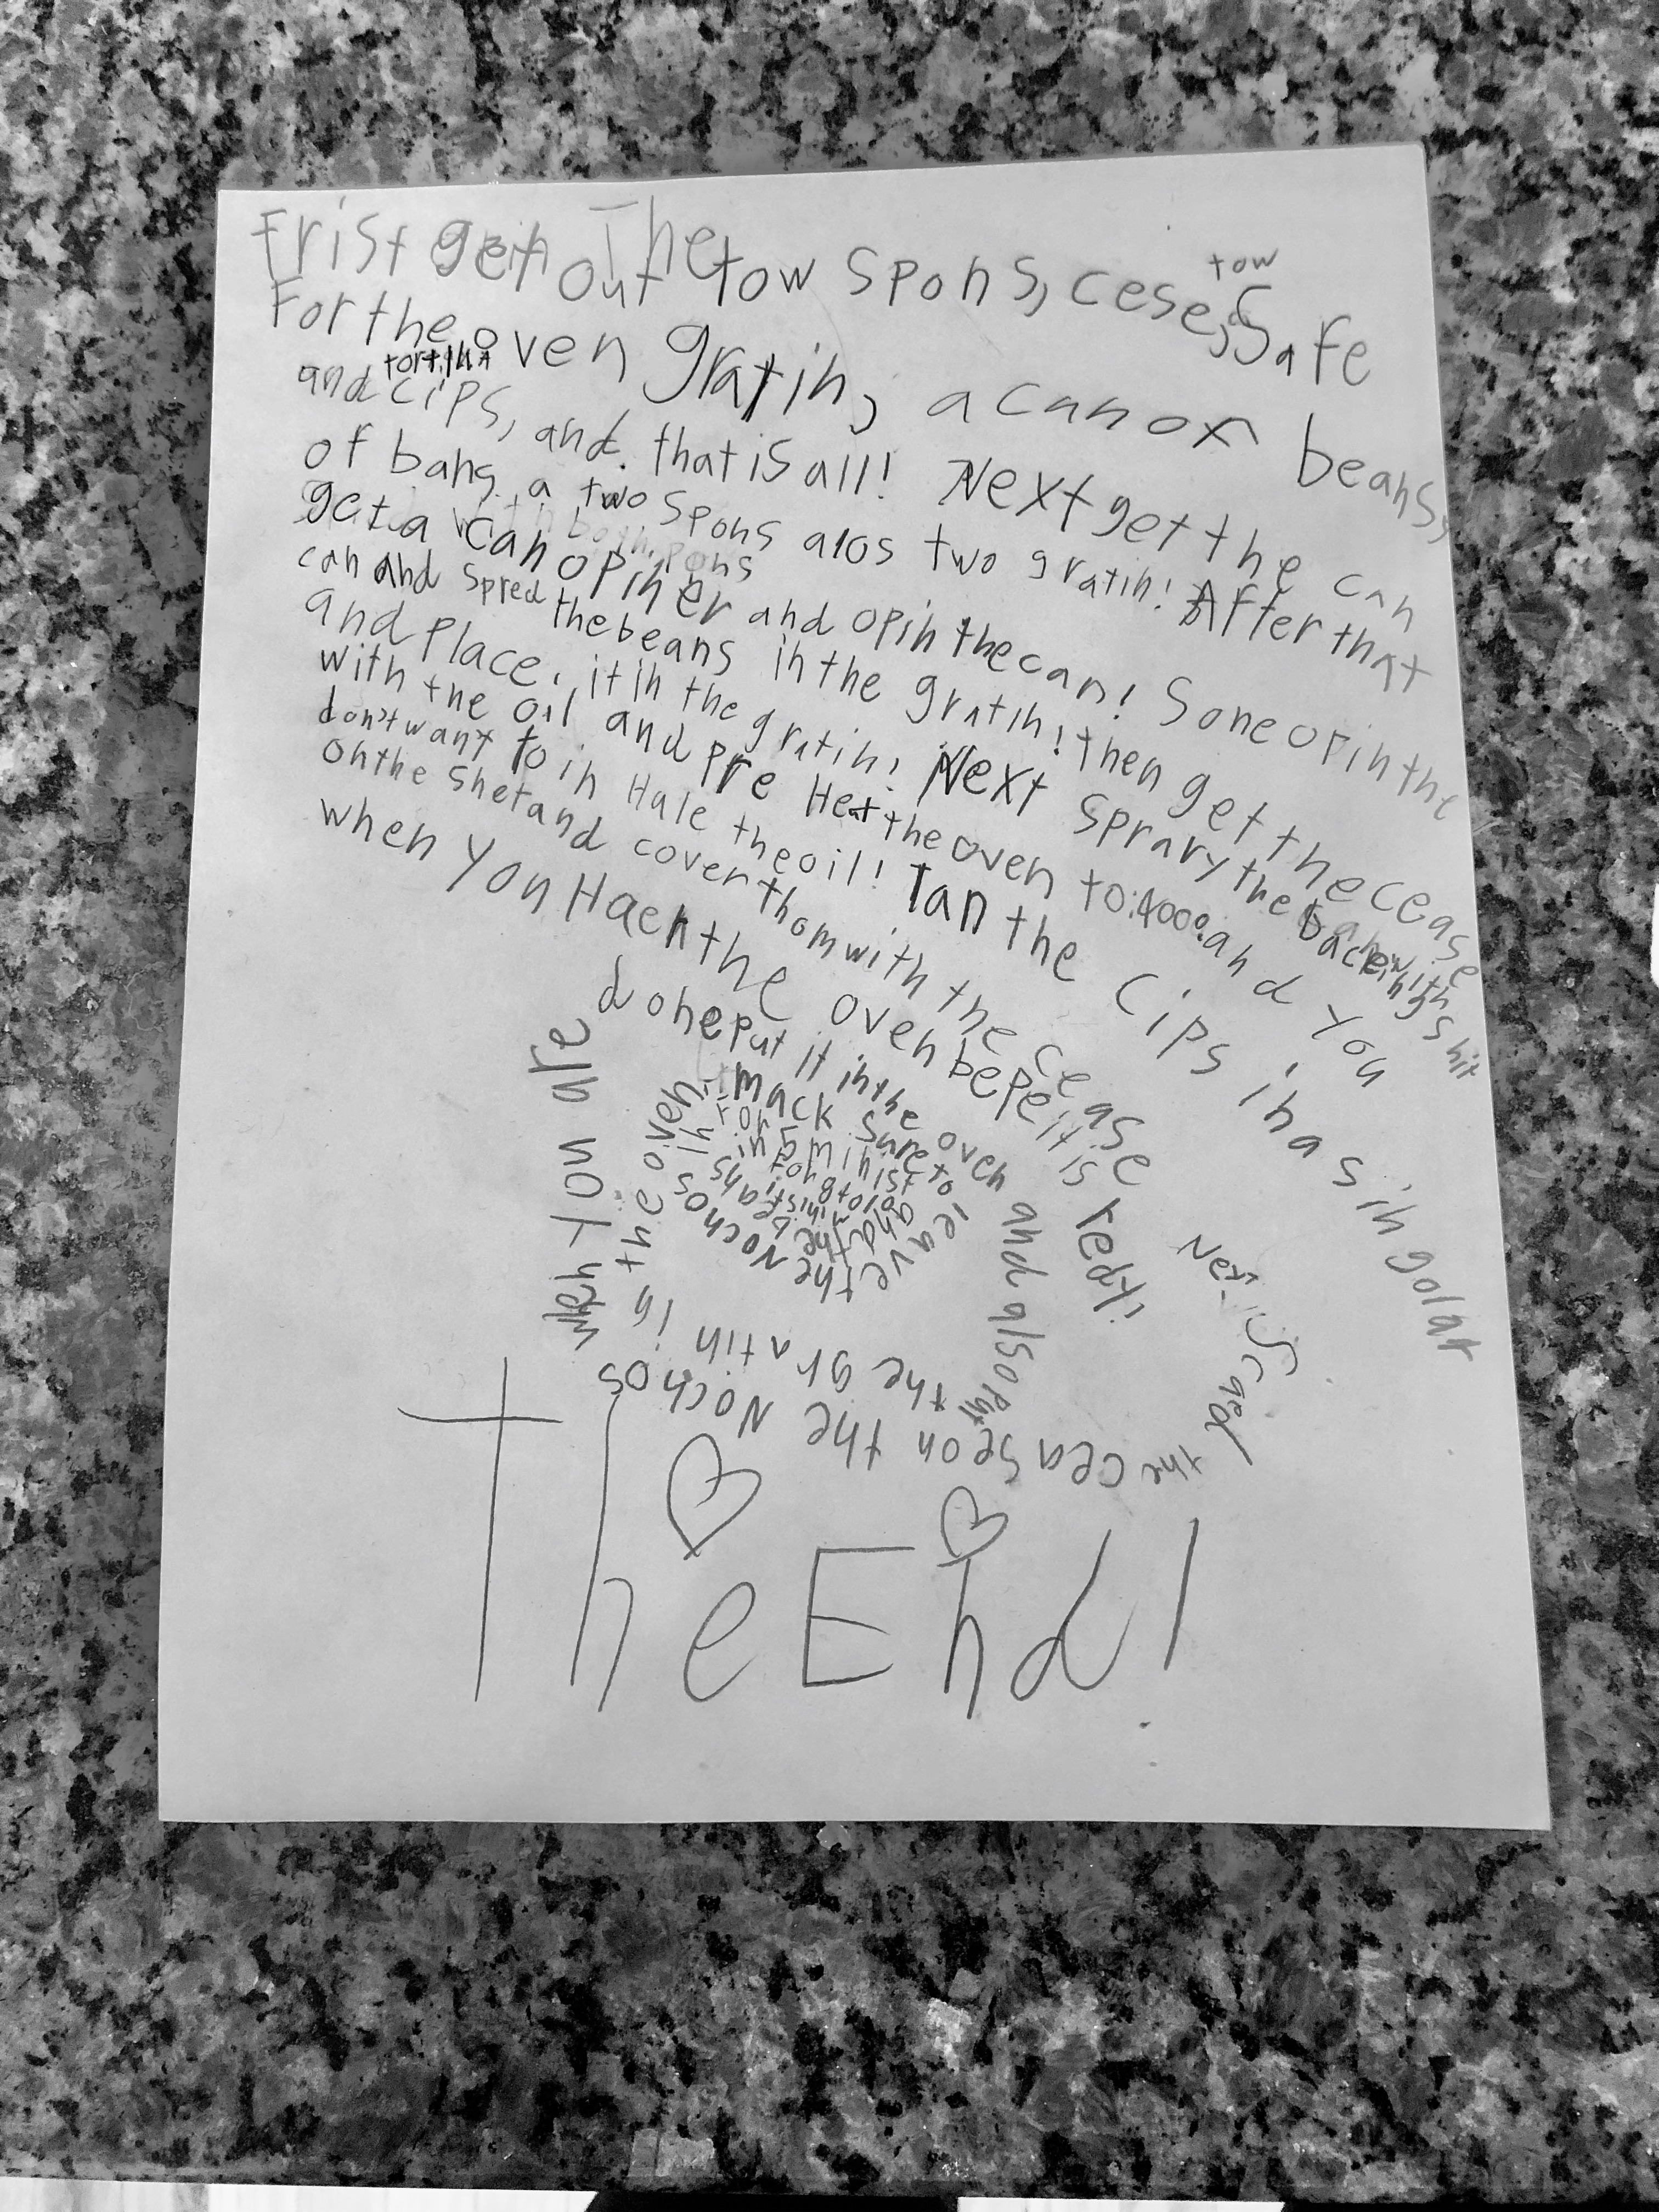 Frist get out The tow spons, cese, tow Safe
For the oven gratin, a can of beans,
and tortilla cips, and. that is all! Next get the can
of bans a two spons alos two gratin! After that
get a can opiner and opin the can! Sone opin the
can and spred the beans in the gratin! then get the cease
and place. it in the gratin! Next sprary the backing shit
with the oil and pre Heat the oven to:400°. and you
don't want to in Hale the oil! Tan the cips in a singolar
on the shet and cover thom with the cease
when you Haer the oven bepe it is redy!
Next Scaed
the cease on the Nochos
when you are
done put it in the oven and also put
the gratin in
the oven.
mack sure to leave
the Nochos in
for 5 minist
and the
beans in
for 8 to 10
minist!
the End!